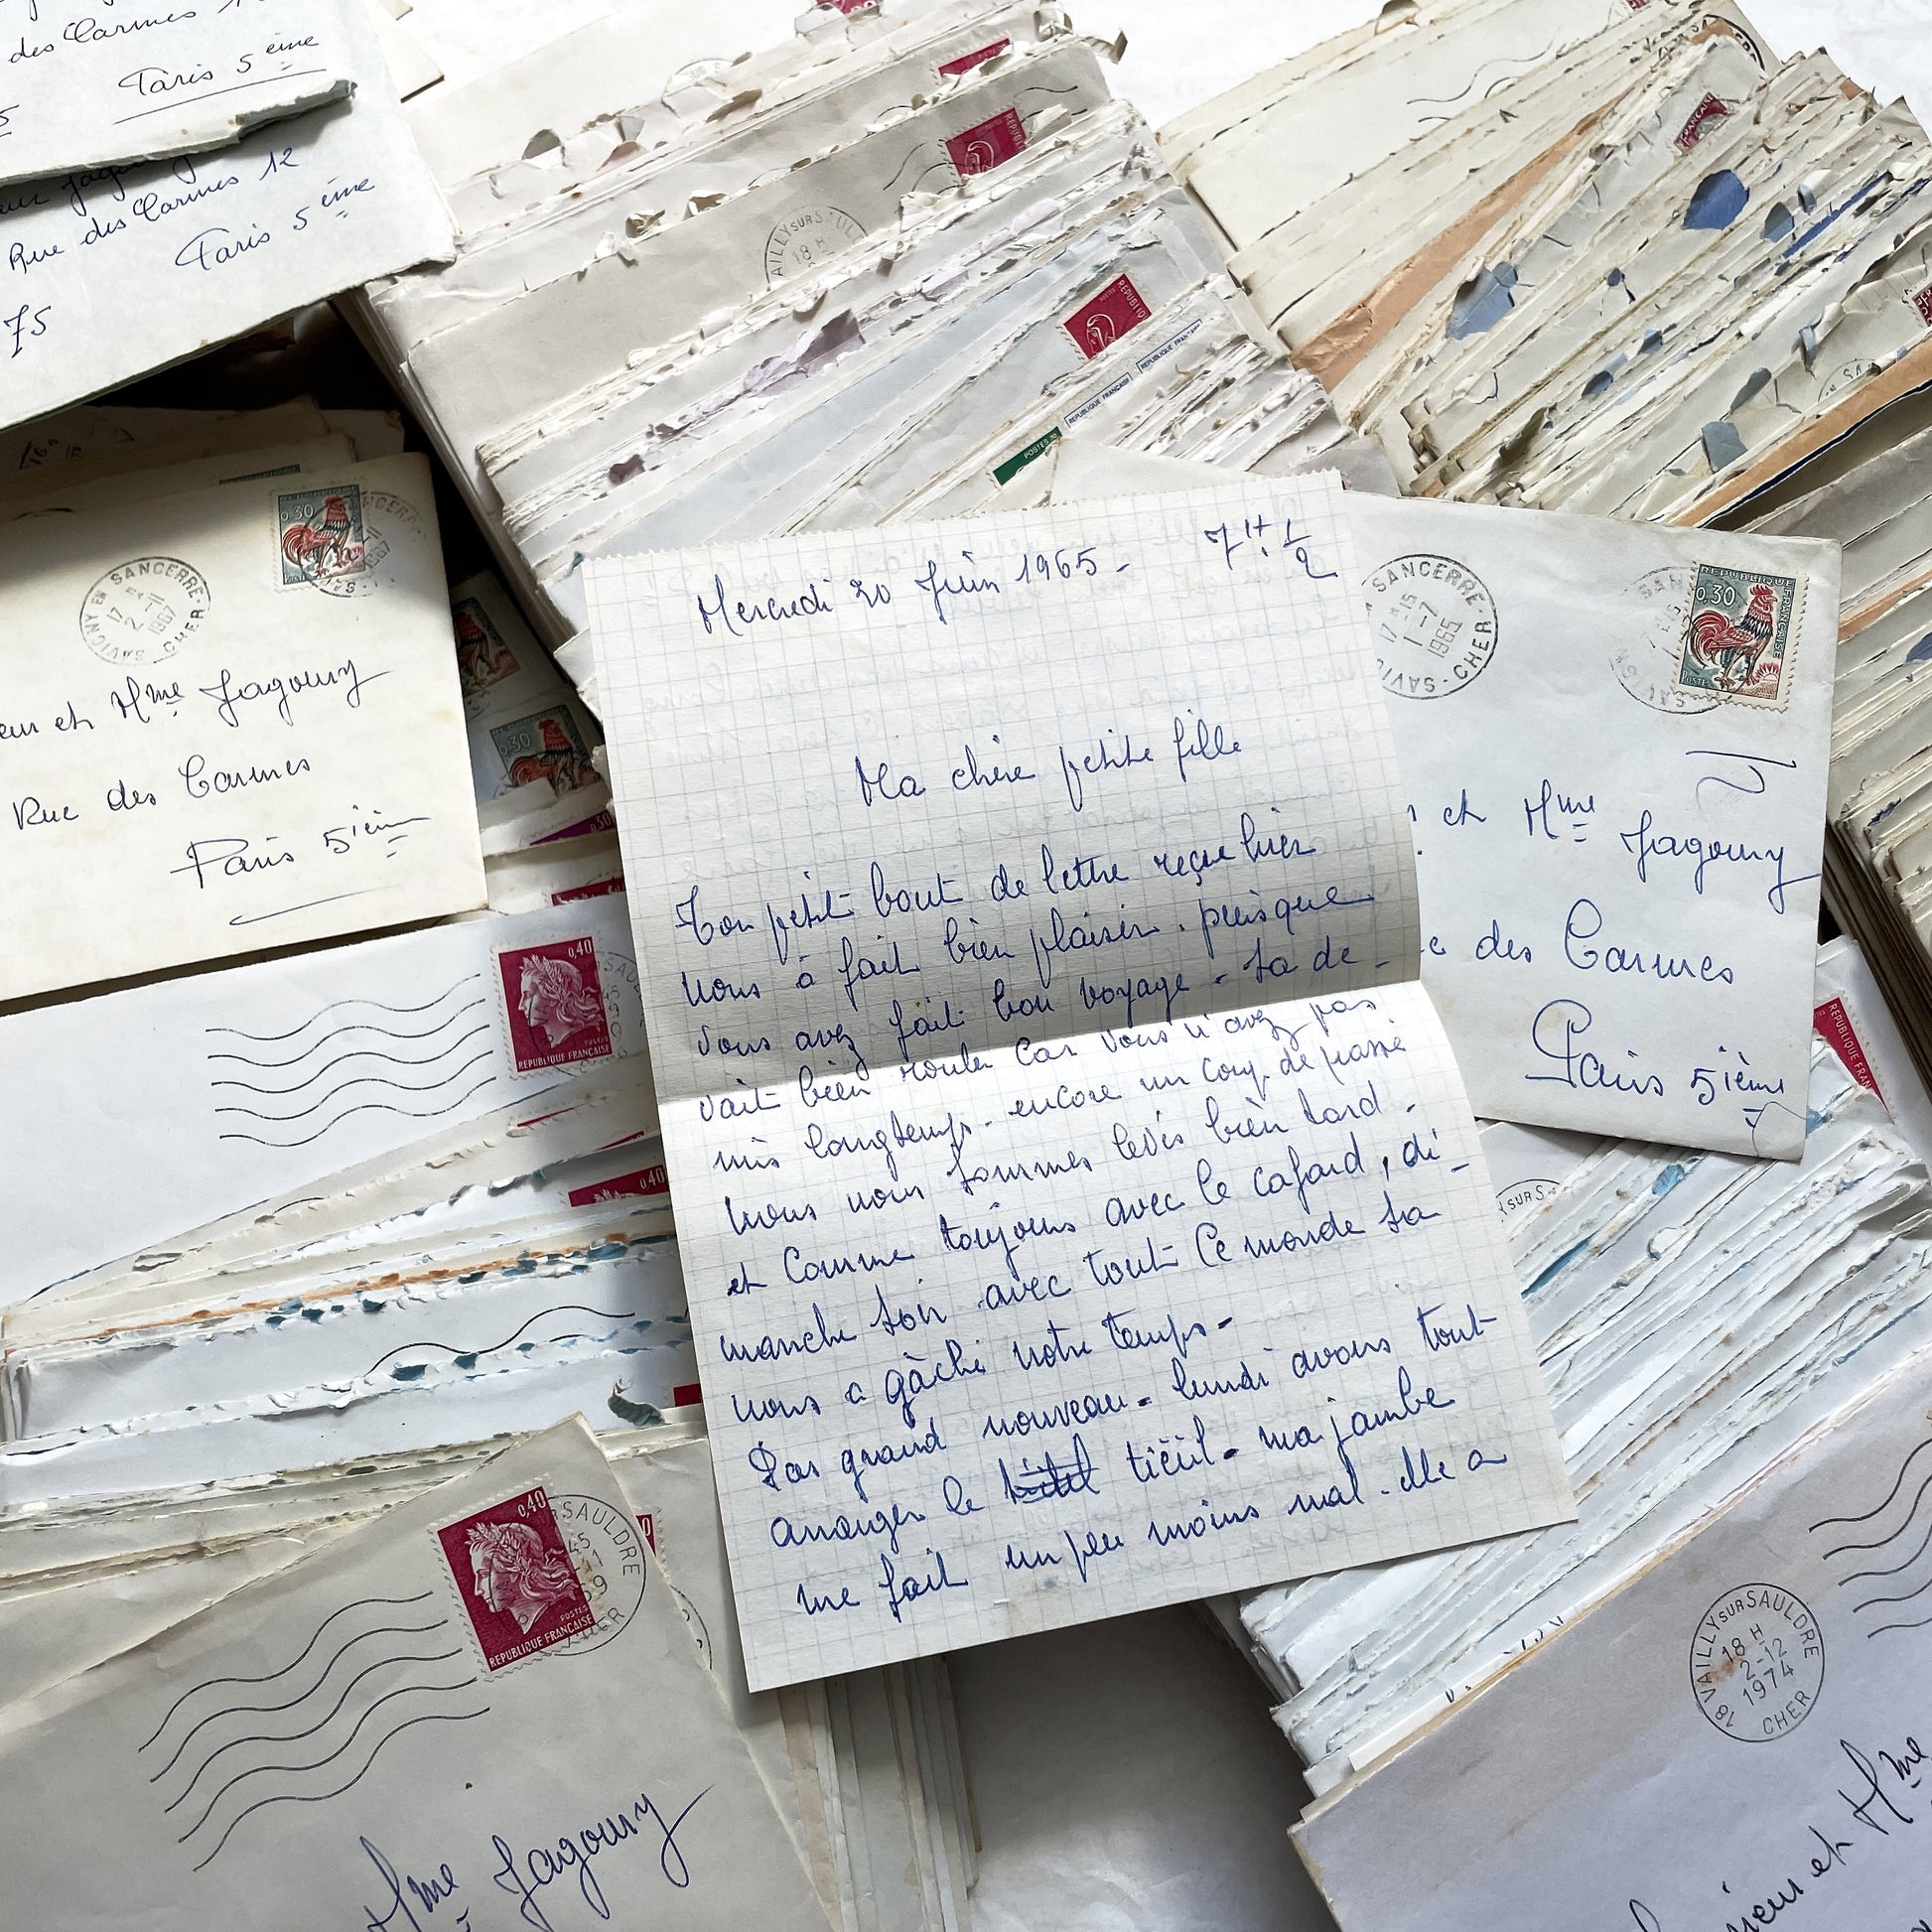 des Carmes
Paris 5 ème
Rue des Carmes 12
Paris 5 ème
75
SANCERRE
SAVIGNY EN
17 H
2-11
1967
CHER
0,30
et Mme Jagoury
Rue des Carmes
Paris 5 ième
0,40
POSTES
REPUBLIQUE FRANÇAISE
0,40
SAULDRE
0,40
POSTES
REPUBLIQUE FRANÇAISE
Mme Jagoury
AILLY SUR S ULD
18 H
REPUBLIQ
REPUBLIQUE FRANÇAISE
REPUBLIQUE FRANÇAISE
POSTES
Mercredi 30 Juin 1965 - 7 H. 1/2
Ma chère petite fille
Ton petit bout de lettre reçue hier
nous à fait bien plaisir. puisque
vous avez fait bon voyage - sa de -
vait bien rouler car vous n'avez pas
mis longtemps. encore un coup de passé
nous nous sommes levés bien tard.
et comme toujours avec le cafard, di -
manche soir avec tout ce monde sa
nous a gâché notre temps -
Pas grand nouveau - lundi avons tout
arranger le tiëül - ma jambe
me fait un peu moins mal. elle a
SANCERRE
17 H 15
1-7
1965
SAVI
CHER
REPUBLIQUE FRANÇAISE
0,30
POSTES
et Mme Jagoury
des Carmes
Paris 5 ième
REPUBLIQUE FRAN
Y SUR S
18 VAILLY SUR SAULDRE
18 H
2-12
1974
CHER
sieur et Mme